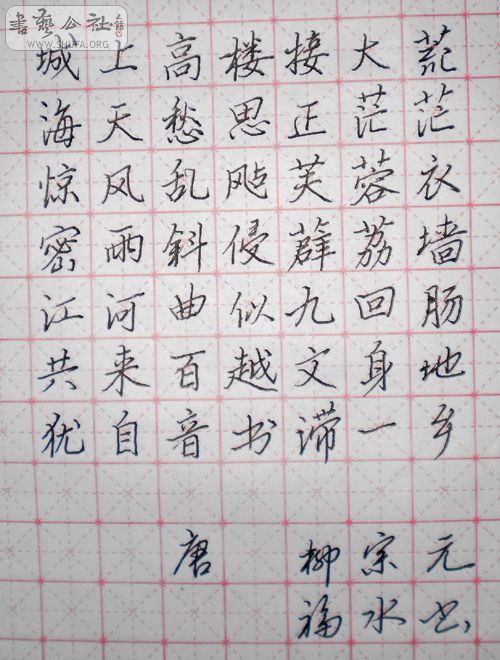 書藝公社
WWW.SHUFA.ORG
城上高楼接大荒
海天愁思正茫茫
惊风乱飐芙蓉衣
密雨斜侵薜荔墙
江河曲似九回肠
共来百越文身地
犹自音书滞一乡
唐 柳宗元
福水书